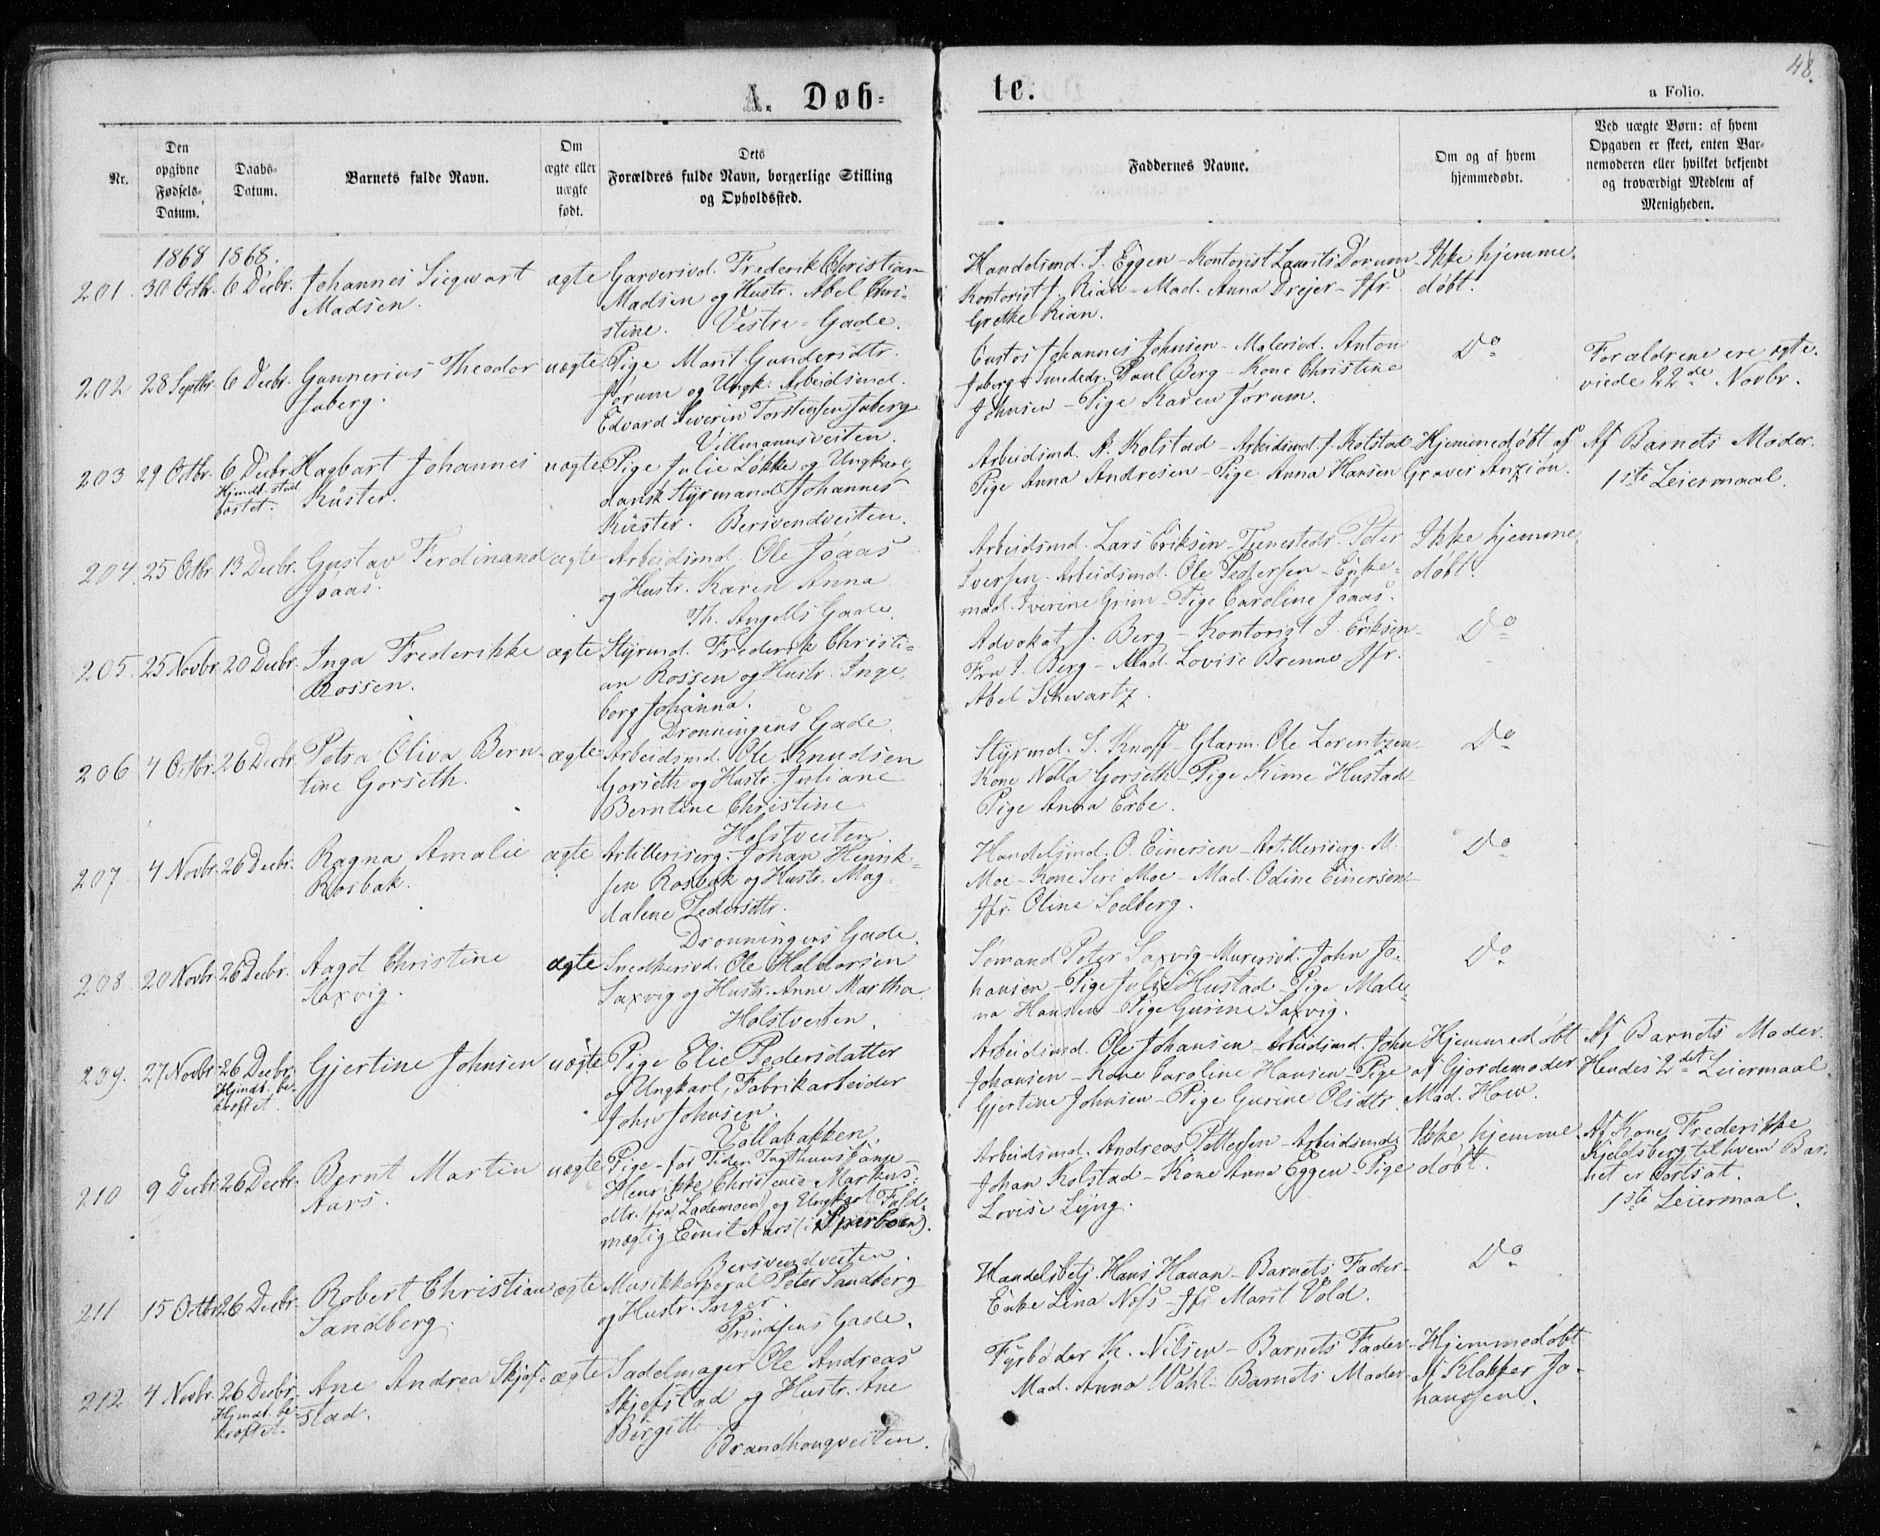 48.
A. Døbte.
a Folio.
Nr.
Den opgivne Fødsels-Datum.
Daabs-Datum.
Barnets fulde Navn.
Om ægte eller uægte født.
Dets Forældres fulde Navn, borgerlige Stilling og Opholdssted.
Faddernes Navne.
Om og af hvem hjemmedøbt.
Ved uægte Børn: af hvem Opgaven er skeet, enten Barnemoderen eller hvilket bekjendt og troværdigt Medlem af Menigheden.
1868 1868.
201. 30 Octbr. 6 Decbr. Johannes Sigwart
Madsen.
ægte
Garversvd. Frederik Christian
Madsen og Hustr. Abel Chri-
stine. Vestre-Gade.
Handelsmd. I. Eggen - Kontorist Laurits Dorum -
Kontorist J. Rian - Mad. Anna Drejer - Jfr.
Grethe Rian.
Ikke hjemme-
døbt.
202 28 Septbr. 6 Decbr. Gunnerius Theodor
Joberg.
uægte
Pige Marit Gundersdtr.
Jorum og Ungk. Arbeidsmd.
Edvard Severin Torstensen Joberg
Villmannsveiten.
Custos Johannes Johnsen - Malersvd. Anton
Joberg - Smededr. Paul Berg - Kone Christine
Johnsen - Pige Karen Jorum.
Do
Forældrene ere ægte-
viede 22de Novbr.
203 29 Octbr. 6 Decbr. Hagbart Johannes
Hjmdb. stad-
fæstet.
Küster.
uægte
Pige Julie Løkke og Ungkarl
dansk Styrmand Johannes
Küster. Bersvendveiten.
Arbeidsmd. A. Kolstad - Arbeidsmd. J. Kolstad
Pige Anna Andresen - Pige Anna Hansen
Hjemmedøbt af
Graver Anzion.
Af Barnets Moder.
1ste Leiermaal.
204. 25 Octbr. 13 Decbr. Gustav Ferdinand
Joaas.
ægte
Arbeidsmd. Ole Joaas
og Hustr. Karen Anna
Th. Angells Gade.
Arbeidsmd. Lars Eriksen - Tjenestedr. Peter
Iversen - Arbeidsmd. Ole Pedersen - Enke-
mad. Iverine Grim - Pige Caroline Joaas.
Ikke hjemme-
døbt.
205. 25 Novbr. 20 Decbr. Inga Frederikke
Rossen.
ægte
Styrmd. Frederik Christi-
an Rossen og Hustr. Inge-
borg Johanna.
Dronningens Gade.
Advokat J. Berg - Kontorist I. Eriksen -
Fru I. Berg - Mad. Lovise Brenne Jfr.
Abel Schwartz.
Do
206 4 Octbr. 26 Decbr. Petra Oliva Bern-
tine Gorseth.
ægte
Arbeidsmd. Ole Knudsen
Gorseth og Hustr. Juliane
Berntine Christine
Holstveiten.
Styrmd. S. Knoff - Glarm. Ole Lorentzen -
Kone Nella Gorseth - Pige Kirne Hustad -
Pige Anna Erbe.
Do
207. 4 Novbr. 26 Decbr. Ragna Amalie
Rosbak.
ægte
Artillerisерg. Johan Henrik-
sen Rosbak og Hustr. Mag-
dalene Pedersdtr.
Dronningens Gade.
Handelsmd. O. Einersen - Artilleriserg. M.
Moe - Kone Seri Moe - Mad. Odine Einersen -
Jfr. Oline Solberg.
Do
208. 20 Novbr. 26 Decbr. Aagot Christine
Saxvig.
ægte
Snedkersvd. Ole Haldorsen
Saxvig og Hustr. Anne Martha
Holstveiten.
Sømand Peter Saxvig - Murersvd. John Jo-
hansen - Pige Julie Hustad - Pige Male-
na Hansen - Pige Gurine Saxvig.
Do
209. 27 Novbr. 26 Decbr. Gjertine Johnsen
Hjmdb. be-
kræftet.
uægte
Pige Elie Pedersdatter
og Ungkarl, Fabrikarbeider
John Johnsen.
Vollabakken.
Arbeidsmd. Ole Johansen - Arbeidsmd. John
Johansen - Kone Caroline Hansen - Pige
Gjertine Johnsen - Pige Gurine Olsdtr.
Hjemmedøbt
af Gjordemoder
Mad. How.
Af Barnets Moder.
Hendes 2det Leiermaal.
210 9 Decbr. 26 Decbr. Bernt Martin
Aars.
uægte
Pige - for Tiden Tugthusfange -
Henrikke Christence Markus-
dtr. fra Lademoen og Ungkarl Fuld-
mægtig Emil Aars (i Sparboen).
Bersvendveiten.
Arbeidsmd. Andreas Pettersen - Arbeidsmd.
Johan Kolstad - Kone Anna Eggen - Pige
Lovise Lyng.
Ikke hjemme-
døbt.
Af Kone Frederikke
Kjeldsberg, til hvem Bar-
net er bortsat.
1ste Leiermaal.
211 15 Octbr. 26 Decbr. Robert Christian
Sandberg.
ægte
Musikkorporal Peter Sandberg
og Hustr. Inger.
Prindsens Gade.
Handelsbetj. Hans Hanan - Barnets Fader -
Enke Lina Noss - Jfr. Marit Vold.
Do
212 4 Novbr. 26 Decbr. Ane Andrea Skjef-
Hjmdb. be-
kræftet.
stad.
ægte
Sadelmager Ole Andreas
Skjefstad og Hustr. Ane
Birgitte
Brandhaugveiten.
Fyrbøder K. Nilsen - Barnets Fader -
Mad. Anna Wahl - Barnets Moder -
Hjemmedøbt
af Klokker Jo-
hanssen.